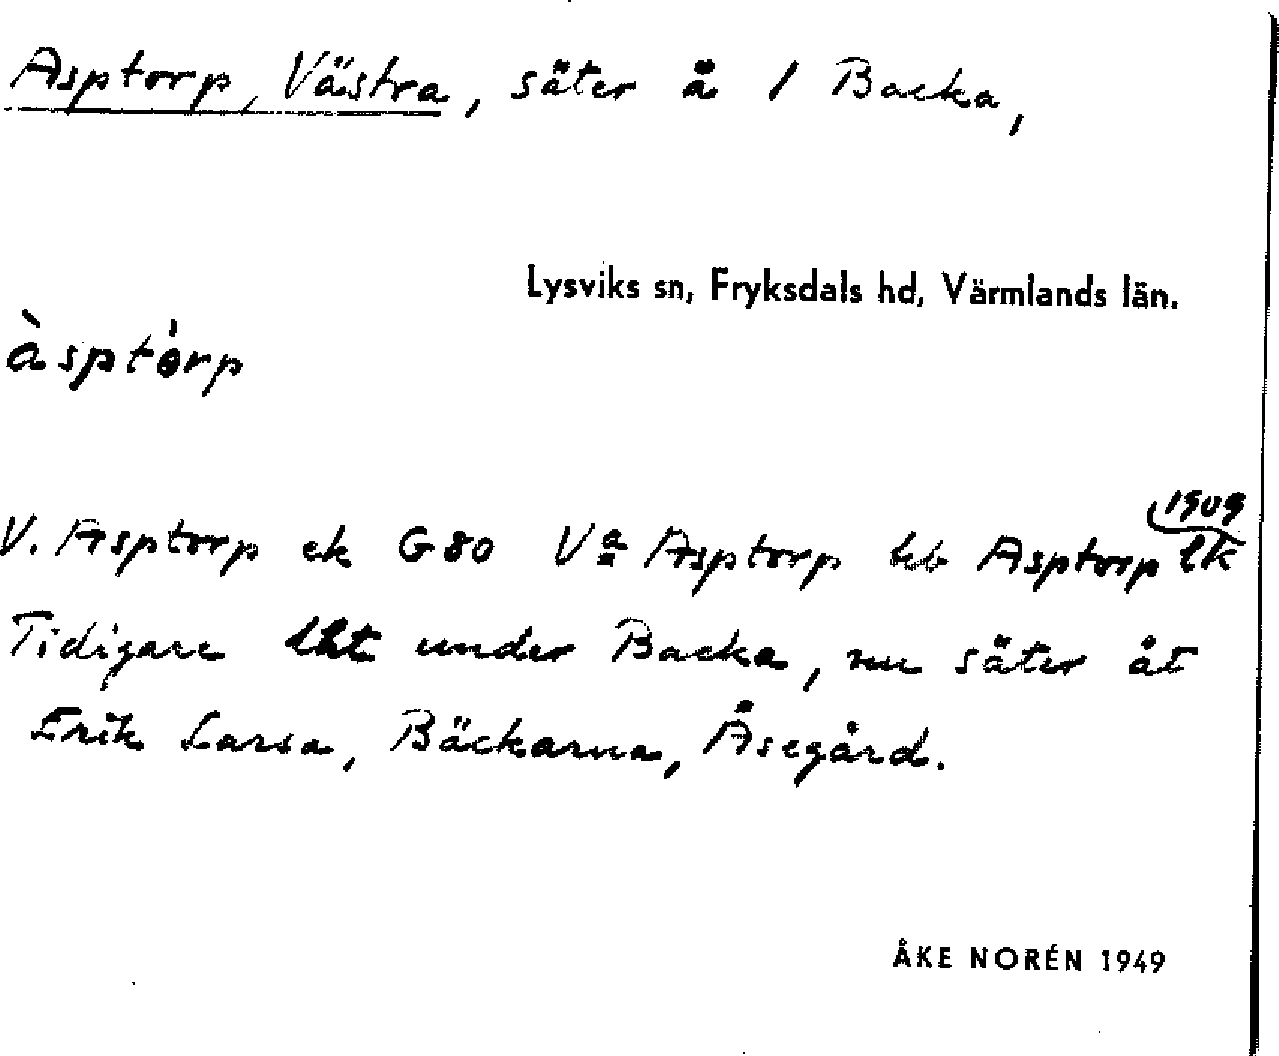 Asptorp, Västra, säter å 1 Backa,
Lysviks sn, Fryksdals hd, Värmlands län.
àsptórp
V. Asptorp ek G80 Va Asptorp hb Asptorp 1909 lk
Tidigare lht under Backa, nu säter åt
Erik Larsa, Bäckarna, Åsegård.
ÅKE NORÉN 1949